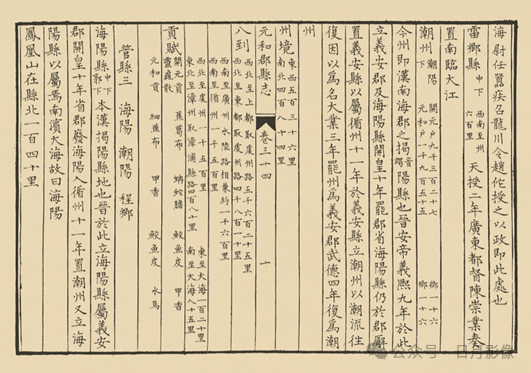 海尉任囂疾召龍川令趙佗授之以政即此處也
雷鄉縣 中下 西南至州六百里 天授二年廣東都督陳崇業奏
置南臨大江
潮州 潮陽 下 開元戶九千三百二十七 鄉一十六 元和戶一千九百五十五 鄉一十六
今州即漢南海郡之揭陽縣也晉安帝義熙九年於此
立義安郡及海陽縣開皇十年罷郡省海陽縣仍於郡廨
置義安縣以屬循州十一年於義安縣立潮州以潮流往
復因以為名大業三年罷州為義安郡武德四年復為潮
州
州境 東西五百三十六里 南北四百八十四里
元和郡縣志 卷三十四 十
八到 西北至上都取虔州路五千六百二十五里
西北至東都取虔州路四千八百一十里
西南至廣州水陸路相兼約一千六百里
西南至循州一千五百里
西北至虔州一千五百里 東至大海一百二十里
東北至漳州取漳浦縣路四百八十里 南至大海八十五里
貢賦 開元貢 蕉葛布 蚺蛇膽 鮫魚皮 甲香
靈龜散
元和貢 細蕉布 甲香 鮫魚皮 水馬
管縣三 海陽 潮陽 程鄉
海陽縣 中下 郭下 本漢揭陽縣地也晉於此立海陽縣屬義安
郡開皇十年省郡廢海陽入循州十一年置潮州又立海
陽縣以屬焉南濱大海故曰海陽
鳳凰山在縣北一百四十里
公众号·日月影像